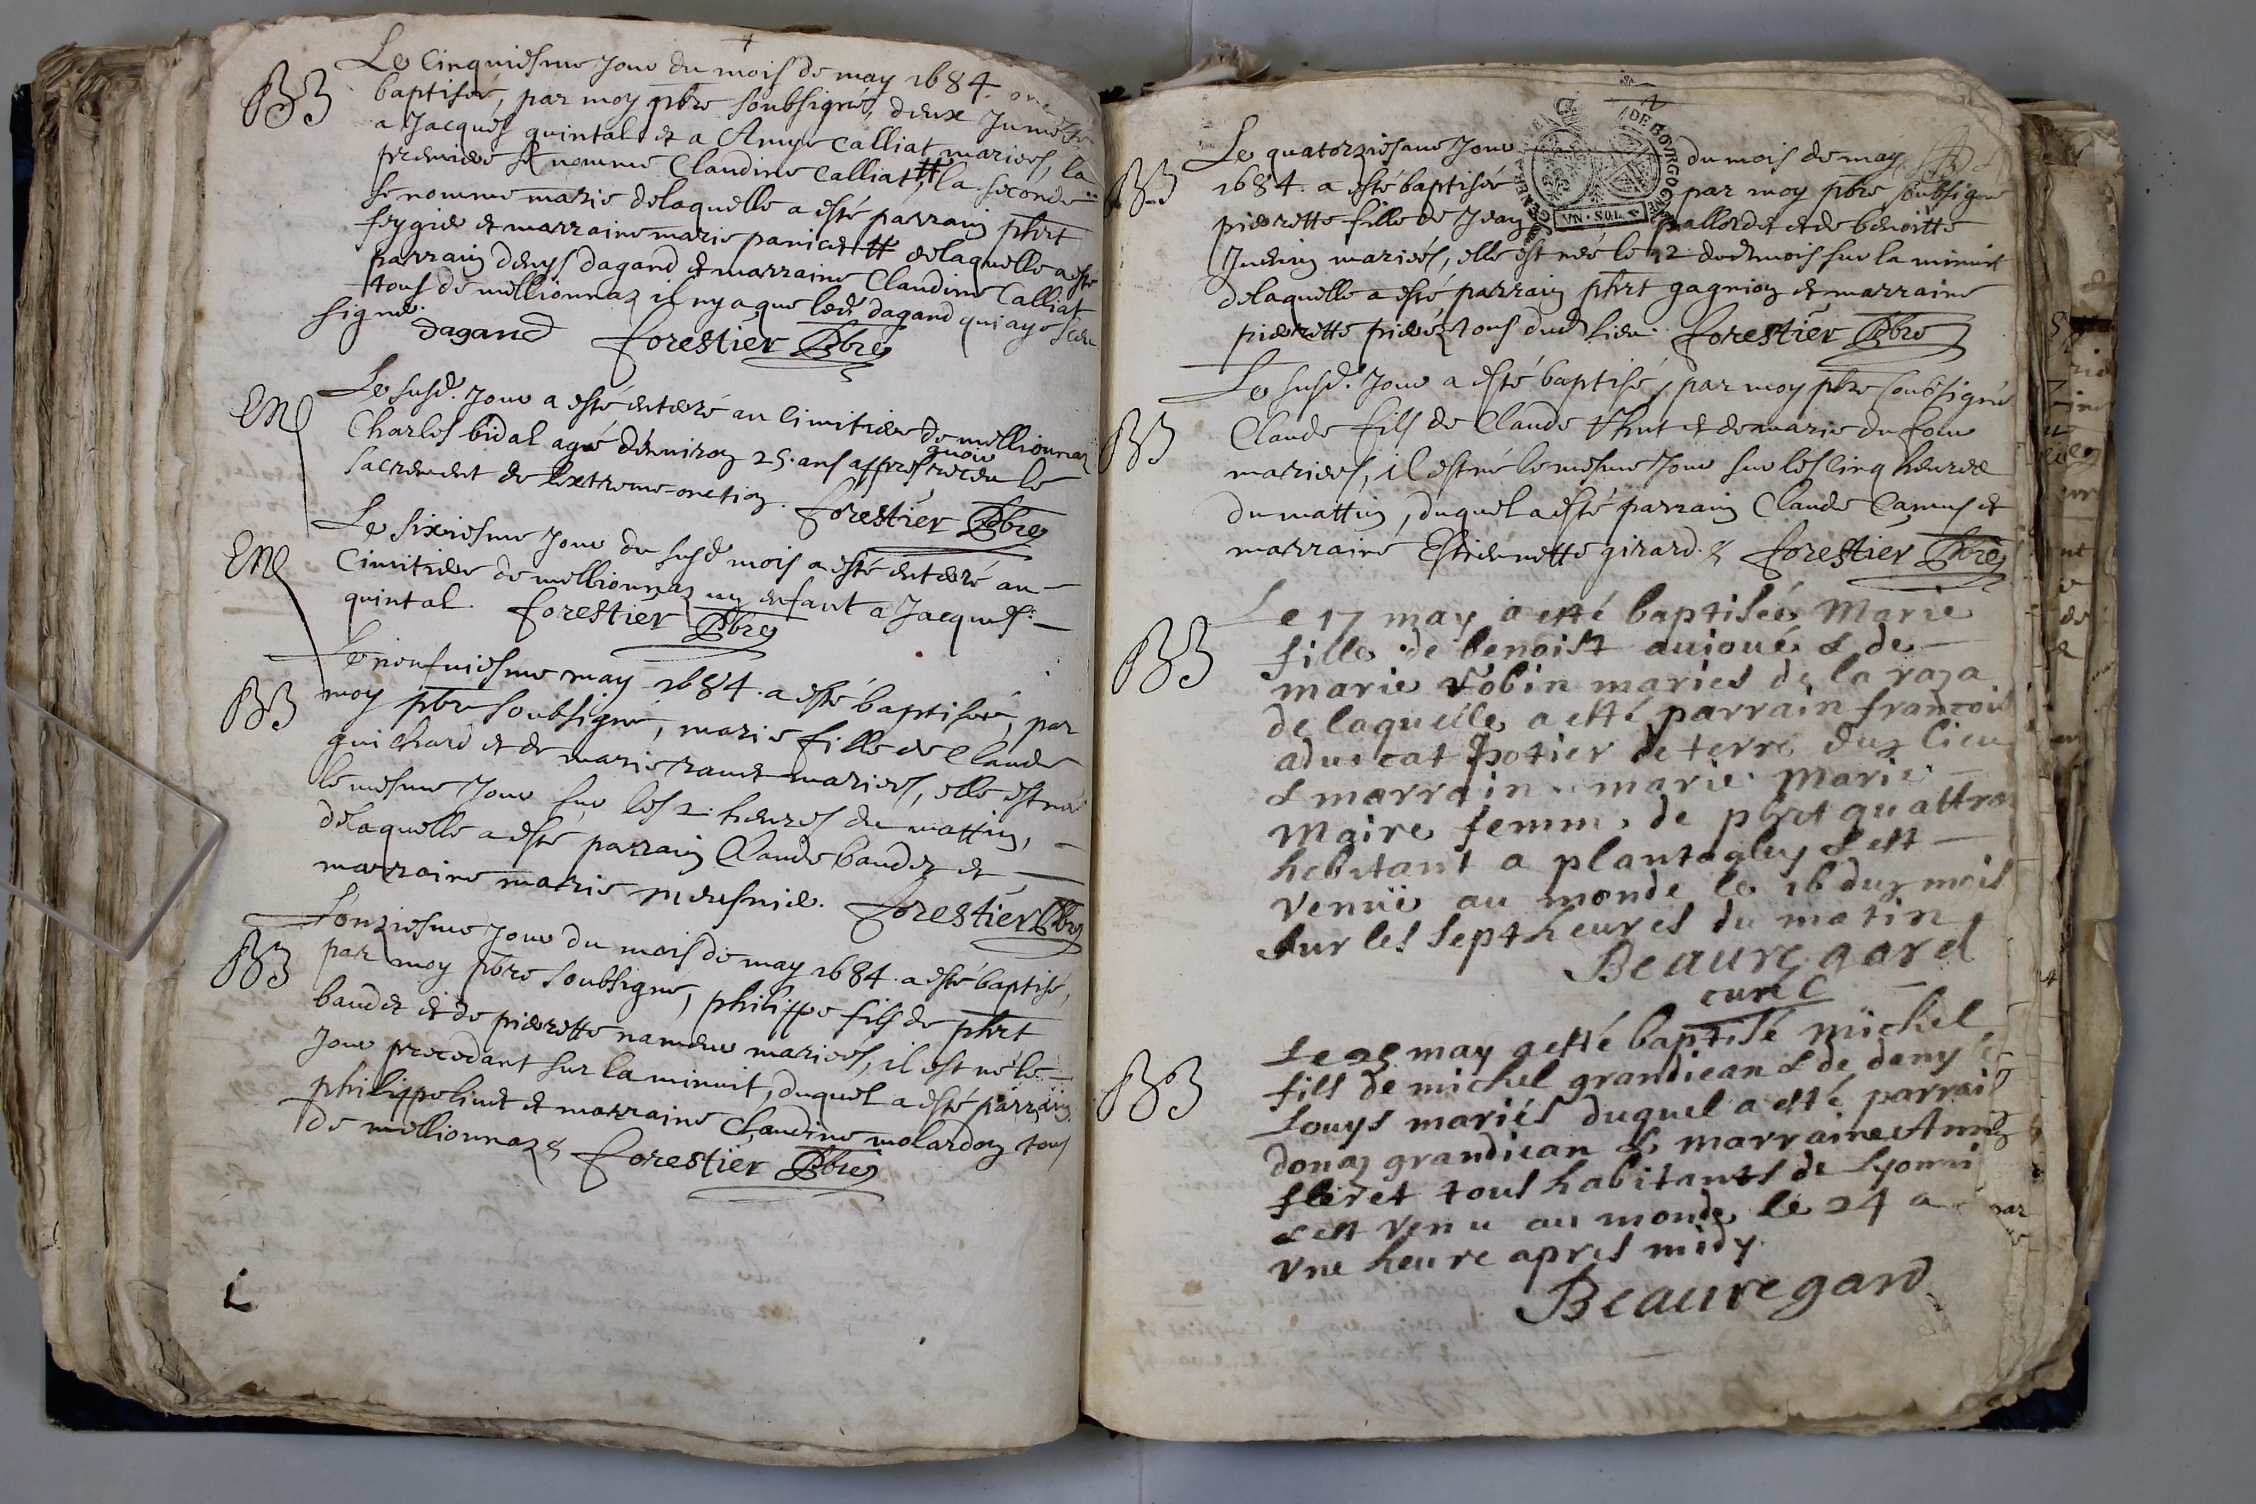 Le Cinquiesme Jour du mois de may 1684. ont esté
baptisée, par moy pbre soubsigné, deux Jumelle
a Jacques quintal et a Amye Calliat mariees, la
premiere se nomme Claudine Calliat # la seconde
se nomme marie delaquelle a esté parrain phrt
frygier et marraine marie paniat # delaquelle a esté
parrain denys dagand et marraine Claudine Calliat
tous de mellionnaz il ny a que led dagand qui aye sceu
signé.
dagand forestier Pbre
BB
Le susd. Jour a esté enterré au Cimitiere de mellionnaz
Charles bidal agé d'environ 25. ans appres avoir receu le
sacrement de l'extreme-onction. forestier Pbre
Le sixiesme Jour du susd mois a esté enterré au
Cimitiere de mellionnaz un enfant a Jacques
quintal. forestier Pbre
Le neufuiesme may 1684. a esté baptisée, par
moy pbre soubsigné, marie fille de Claude
guichard et de marie ramet mariees, elle est née
le mesme Jour sur les 2. heures du mattin,
delaquelle a esté parrain Claude baudet et
marraine marie mesnier. forestier Pbre
BB
L'onziesme Jour du mois de may 1684. a esté baptisé,
par moy pbre soubsigné, philippe fils de phrt
baudet et de pierrette nameur mariees, il est né le
Jour precedant sur la minuit, duquel a esté parrain
philippe linet et marraine Claudine molardon tous
de mellionnaz & forestier Pbre
BB
Le quatorziesme Jour du mois de may
1684. a esté baptisée par moy pbre soubsigné
pierrette fille de Jean pallordet et de benoitte
Juenin mariees, elle est née le 12 dud mois sur la minuit
delaquelle a esté parrain phrt gagnion et marraine
pierrette pierrez tous dud lieu. forestier Pbre
GENER DE BOURGOGNE
VN · SOL
BB
Le susd. Jour a esté baptisé, par moy pbre soubsigné
Claude fils de Claude Thut et de marie du four
mariees, il est né le mesme Jour sur les cinq heures
du mattin, duquel a esté parrain Claude Camus et
marraine Estiennette girard. & forestier Pbre
BB
Le 17 may a esté baptisée Marie
fille de benoist auioué & de
marie Robin maries de la raza
de laquelle a esté parrain francois
aduocat potier de terre dud lieu
& marrain marie Marie
Maire femme de phret quattran
hebitant a plantagley & est
venüe au monde le 16 dud mois
sur les sept heures du matin
Beauregard
curé
BB
Le 25 may a esté baptisé michel
fils de michel grandiean & de deny
Louys mariés duquel a esté parrain
donaz grandiean & marraine Anne
floret tous habitants de Lyonni
& est venu au monde le 24 a
vne heure apres midy
Beauregard
BB